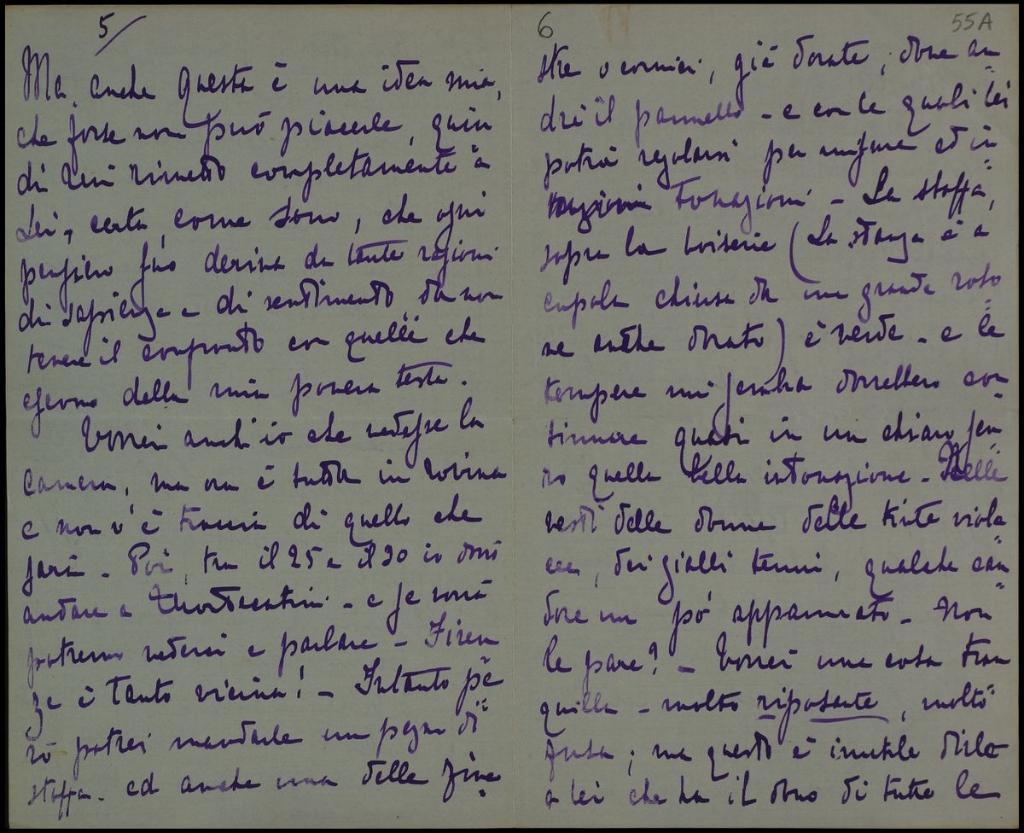 5/
Ma, anche questa è una idea mia,
che forse non può piacerle, quin
di rimetto completamente a
Lei, certa, come sono, che ogni
pensiero suo deriva da tante ragioni
di sapienza e di sentimento da non
tenere il confronto con quelle che
escono dalla mia povera testa.
Vorrei anch'io che vedesse la
camera, ma ora è tutta in rovina
e non v'è traccia di quello che
sarà - Poi, tra il 25 e il 30 io dovrò
andare a Montecatini - e se vorrà
potremo vederci e parlare - Firen
ze è tanto vicina! - Intanto pe
rò potrei mandarle un pezzo di
stoffa - ed anche una delle fine=
6
55A
stre o cornici, già dorate, dove an=
drà il pannello - e con le quali lei
potrà regolarsi per misure ed in=
tonazioni - La stoffa,
sopra la boiserie (La stanza è a
cupola chiusa da una grande roso
ne anche dorato) è verde - e le
tempere mi sembra dovrebbero con
tinuare quasi in un chiaro sen
so quella bella intonazione - Nelle
vesti delle donne delle tinte viola
cee, dei gialli tenui, qualche can=
dore un pò appannato - Non
le pare? - Vorrei una cosa tran
quilla - molto riposante, molto
fusa; ma questo è inutile dirlo
a lei che ha il dono di tutte le